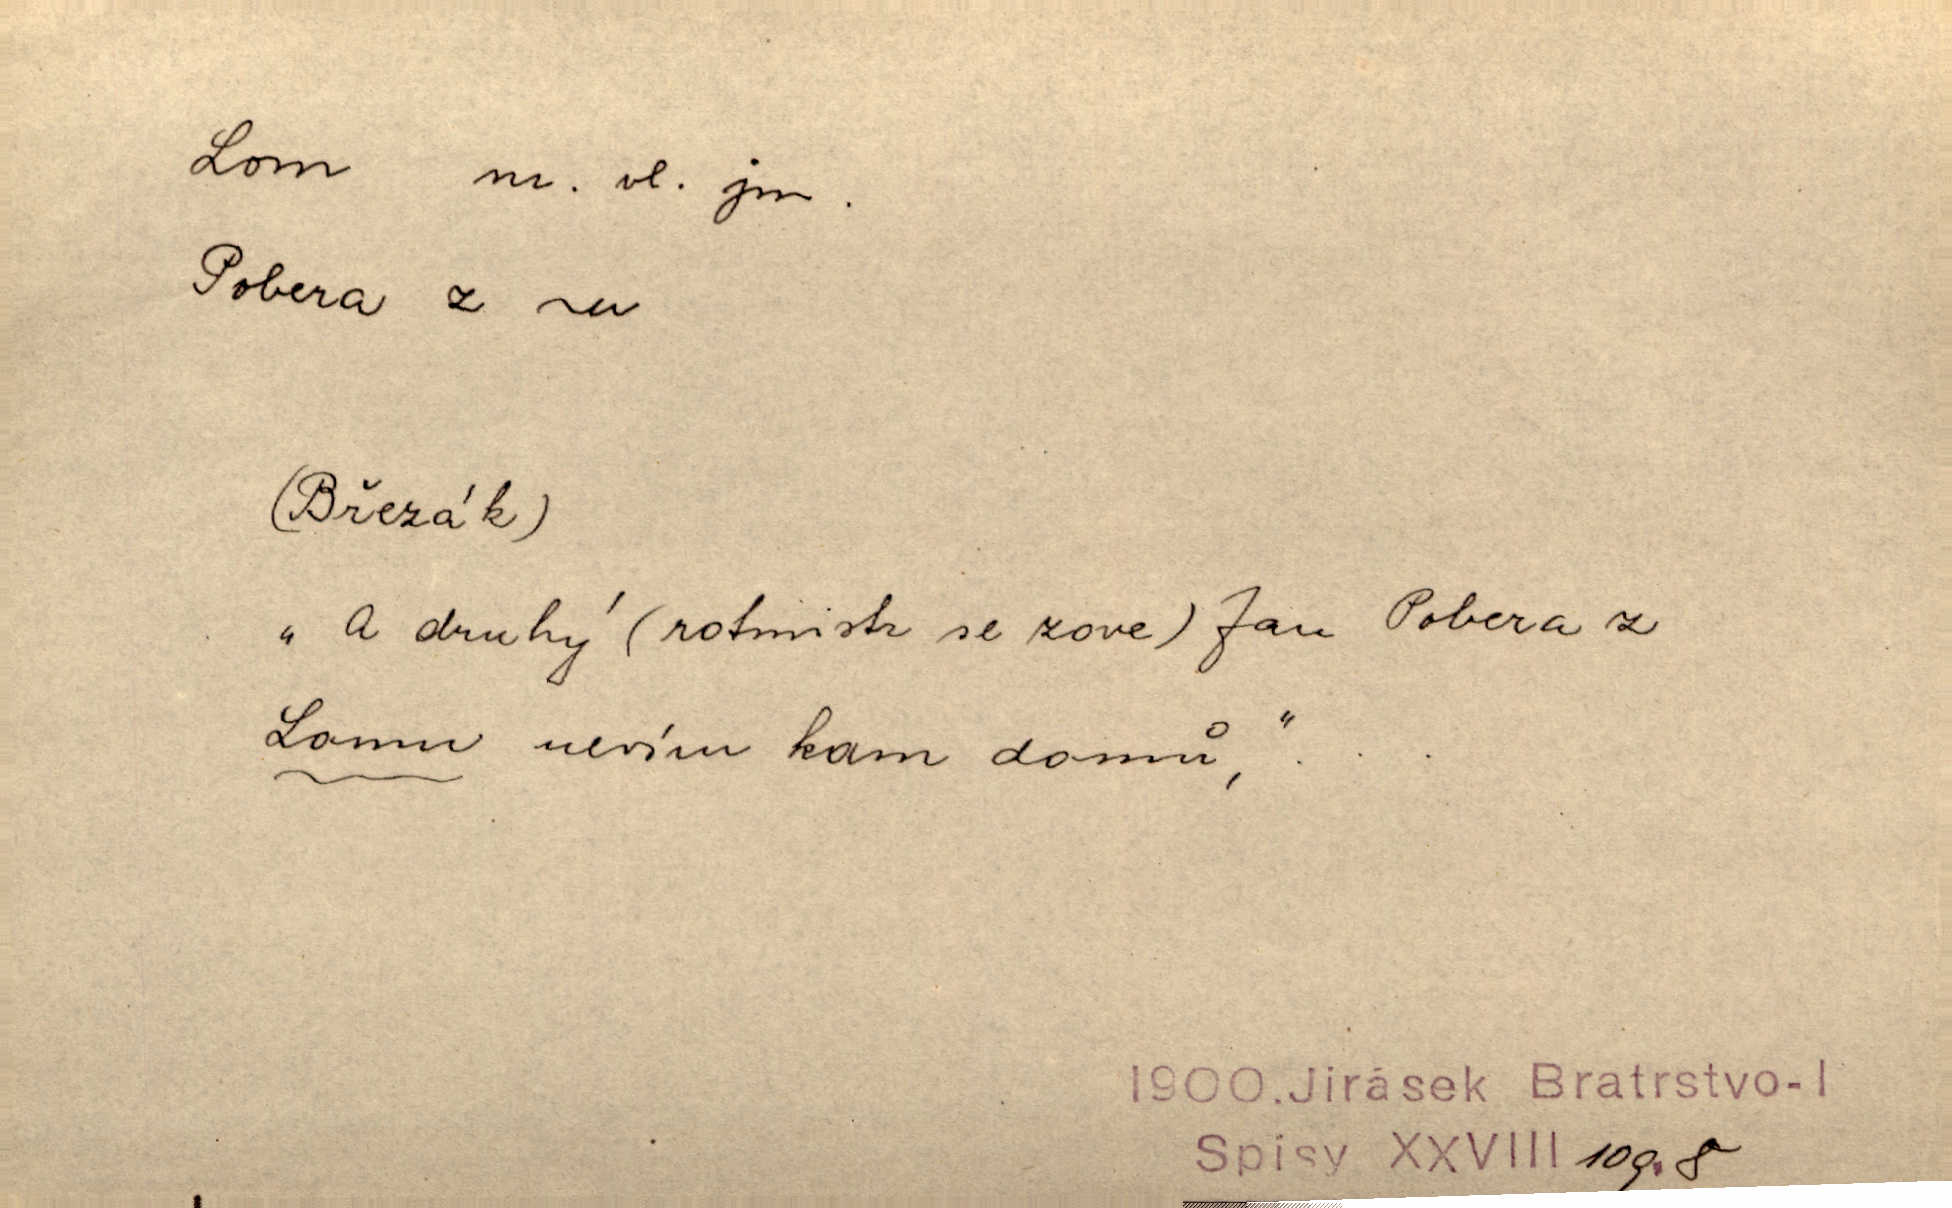 Lom m. vl. jm.
Pobera z ~u
(Březák)
„ A druhý (rotmistr se zove) Jan Pobera z
Lomu nevím kam domů,“ . . .
1900. Jirásek Bratrstvo-I
Spisy XXVIII 109.8